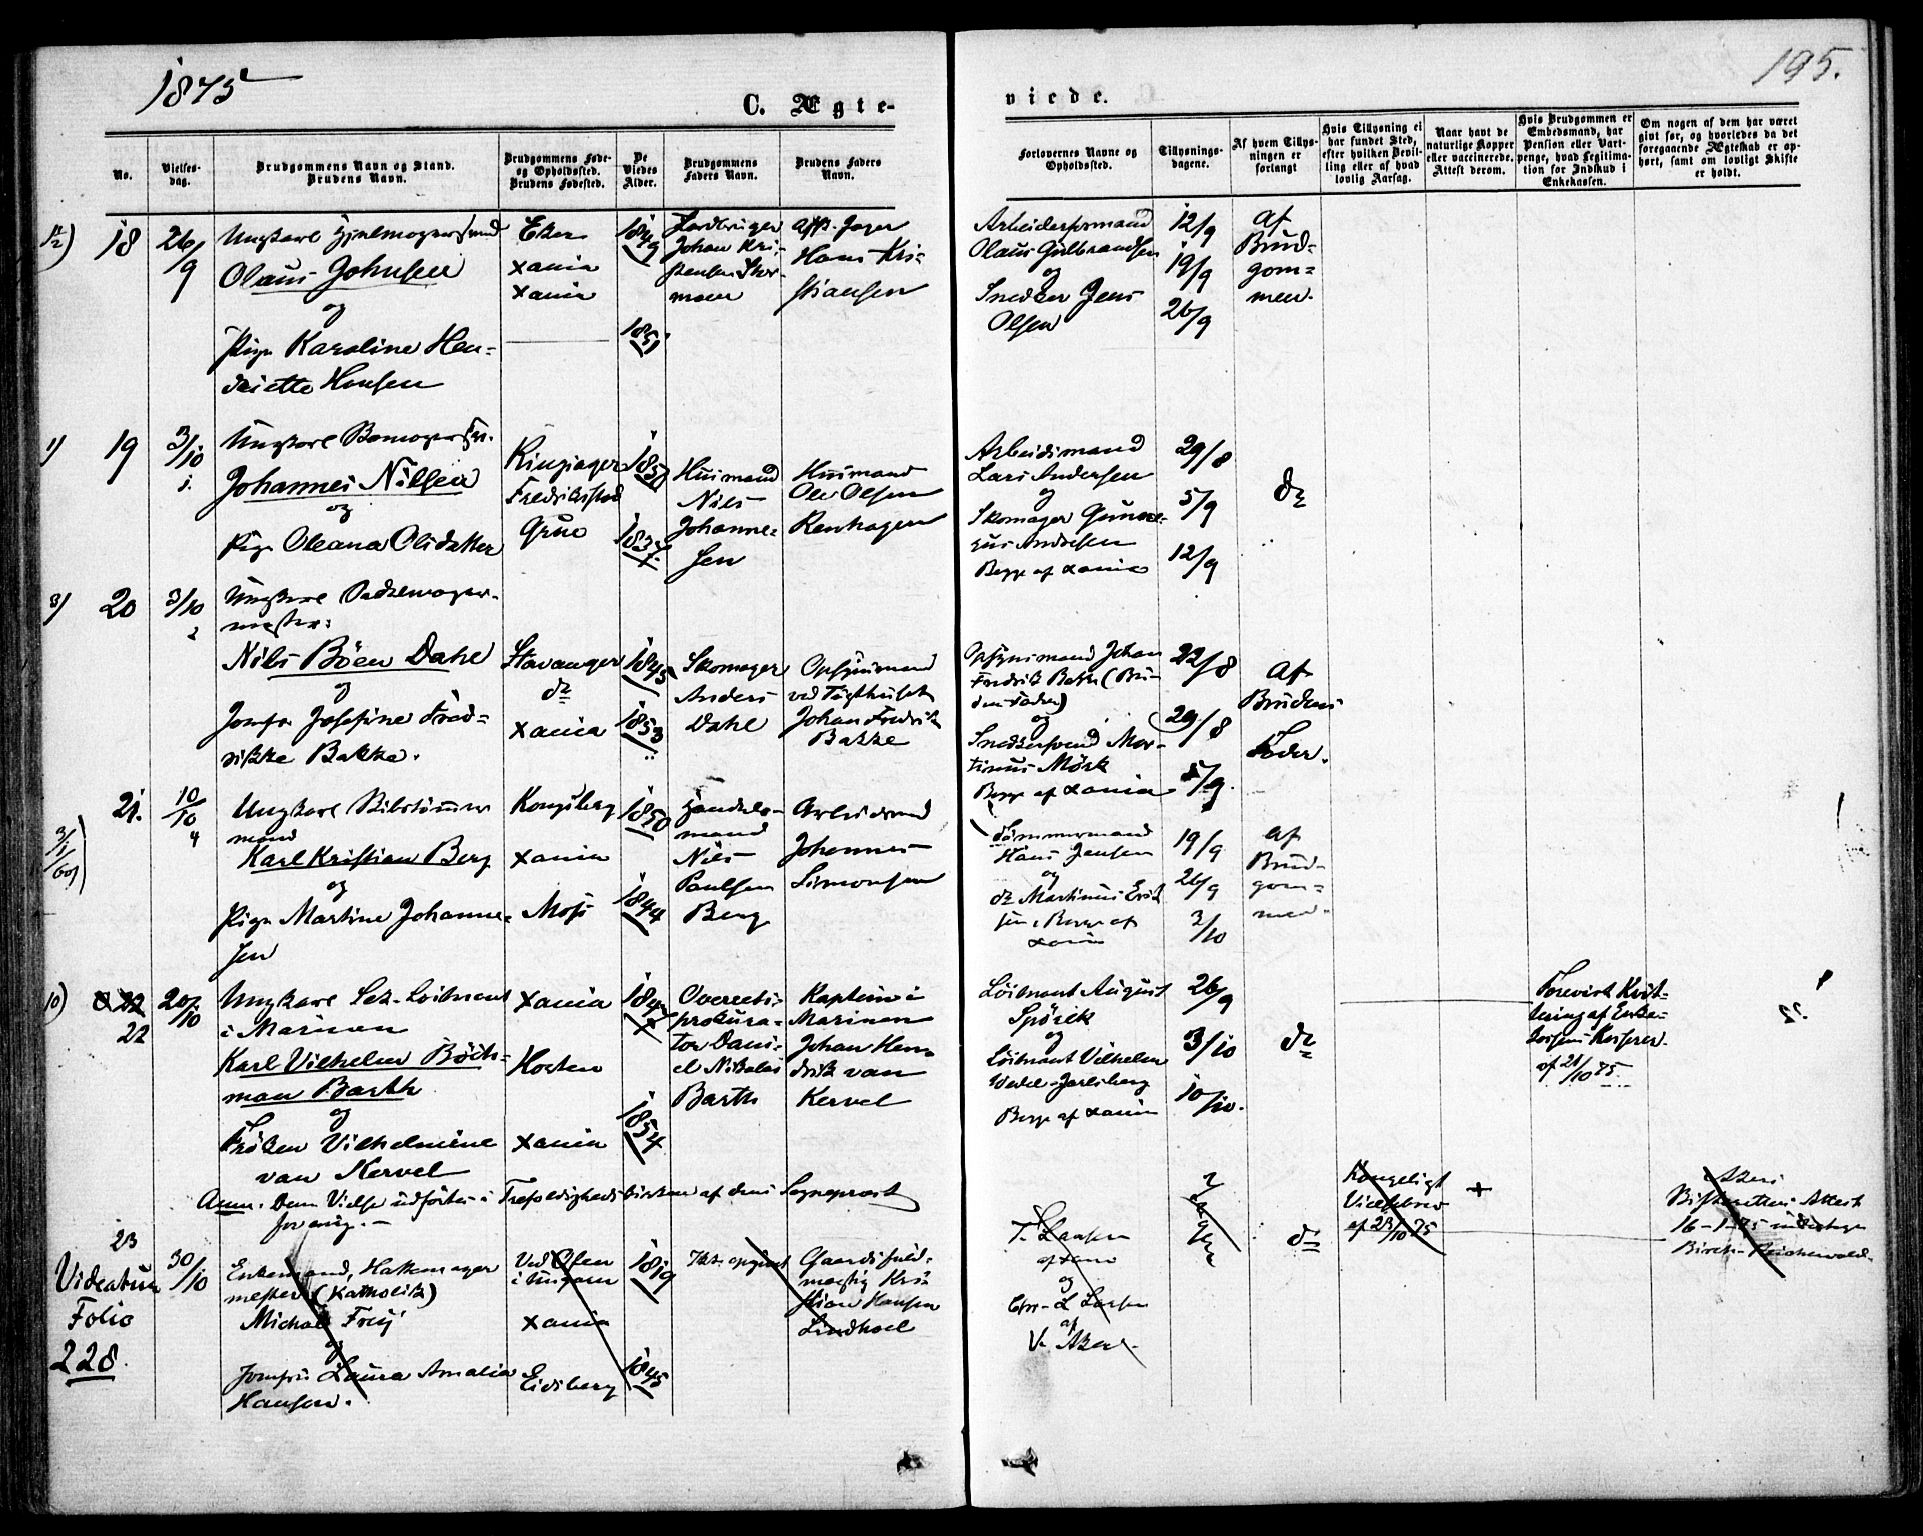 1875
195.
C. Ægte-
viede.
No.
Vielses-
dag.
Brudgommens Navn og Stand.
Brudens Navn.
Brudgommens Føde-
og Opholdssted.
Brudens Fødested.
De
Viedes
Alder.
Brudgommens
Faders Navn.
Brudens Faders
Navn.
Forlovernes Navne og
Opholdssted.
Tillysnings-
dagene.
Af hvem Tillys-
ningen er
forlangt
Hvis Tillysning ei
har fundet Sted,
efter hvilken Bevil-
ling eller af hvad
lovlig Aarsag.
Naar havt de
naturlige Kopper
eller vaccinerede.
Attest derom.
Hvis Brudgommen er
Embedsmand, har
Pension eller Vart-
penge, hvad Legitima-
tion for Indskud i
Enkekassen.
Om nogen af dem har været
gift før, og hvorledes da det
foregaaende Ægteskab er op-
hørt, samt om lovligt Skifte
er holdt.
18
26/9
Ungkarl Hjulmagersvend
Olaus Johnsen
og
Pige Karoline Hen-
driette Hansen
Eker
Xania
Xania
1849
1851
Johan Kri-
stensen Stor-
moen
Hans Kri-
stiansen
Arbeidsformand
Olaus Gulbrandsen
og
Snedker Jens
Olsen
12/9
19/9
26/9
Af
Brud-
gom-
men.
1)
19
3/10
1.
Ungkarl
Johannes Nilsen
og
Pige Oleana Olsdatter
Ringsager
Fredrikstad
Grue
1850
1837
Husmand
Nils
Johanne-
sen
Husmand
Ole Olsen
Renhagen
Arbeidsmand
Lars Andersen
og
Skomager Gunne-
rus Andresen
Begge af Xania
29/8
5/9
12/9
do
3)
20
3/10
2
Ungkarl
mester:
Nils Böen Dahl
og
Jomfru Josefine Fred-
rikke Bakke.
Stavanger
do
Xania
1845
1853
Skomager
Anders
Dahl
Opsynsmand
ved Tugthuset
Johan Fredrik
Bakke
Opsynsmand Johan
Fredrik Bakke (Bru-
dens Fader)
og
Snedkersvend Mar-
tinus Mörk
Begge af Xania
22/8
29/8
5/9.
Af
Brudens
Fader.
21.
10/10
4
Ungkarl Bibtömmer
mand
Karl Kristian Berg
og
Pige Martine Johanne-
sen
Kongsberg
Xania
Moss
1850
1844
Handels-
mand
Nils
Paulsen
Berg
Arbeidsmand
Johannes
Simonsen
Tömmermand
Hans Jensen
og
do Martinus Erik
sen, Begge af
Xania
19/9
26/9
3/10
Af
Brud-
gom-
men.
10)
22
20/10
Ungkarl Sek-Löitnant
i Marinen
Karl Vilhelm Böck-
man Barth
og
Fröken Vilhelmine
van Kervel
Xania
Horten
Xania
1847
1854
Overrets-
prokura-
tor Dani-
el Nikolai
Barth
Kaptein i
Marinen
Johan Hen-
drik van
Kervel
Löitnant August
Spörck
og
Löitnant Vilhelm
Wedel-Jarlsberg
Begge af Xania
26/9
3/10
10/10.
do
Forevist Kvit-
tering af Enke-
kassens Kasserer
af 21/10 75
Anm. Denne Vielse udförtes i Trefoldighedskirken af dens Sogneprest
23
Videatur
Folio
228.
30/10
Enkemand, Hattemager
mester (Katholik)
Michal Frey
og
Jomfru Laura Amalie
Hansen.
Ved Ofen
i Ungarn
Xania
Eidsberg
1819
1845
Ikke opgivet
Gaardsfuld-
mægtig Kri-
stian Hansen
Lindhoel
T. Larsen
af Xania
og
Chr. L Larsen
af
V. Aker.
Ingen
do
Kongeligt
Vielsebrev
af 23/10 75
+
Akers
Bifteretters Attest
16-1-75